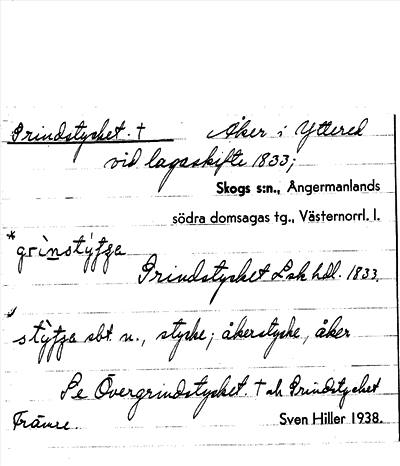 Grindstycket. † Åker i Yttered
vid lagaskifte 1833;
Skogs s:n., Ångermanlands
södra domsagas tg., Västernorrl. l.
*grinstỳʃʒa
Grindstycket Lsk hdl. 1833.
stỳʃʒa sbt. n., stycke; åkerstycke, åker
Se Övergrindstycket. † och Grindstycket
Främre. Sven Hiller 1938.